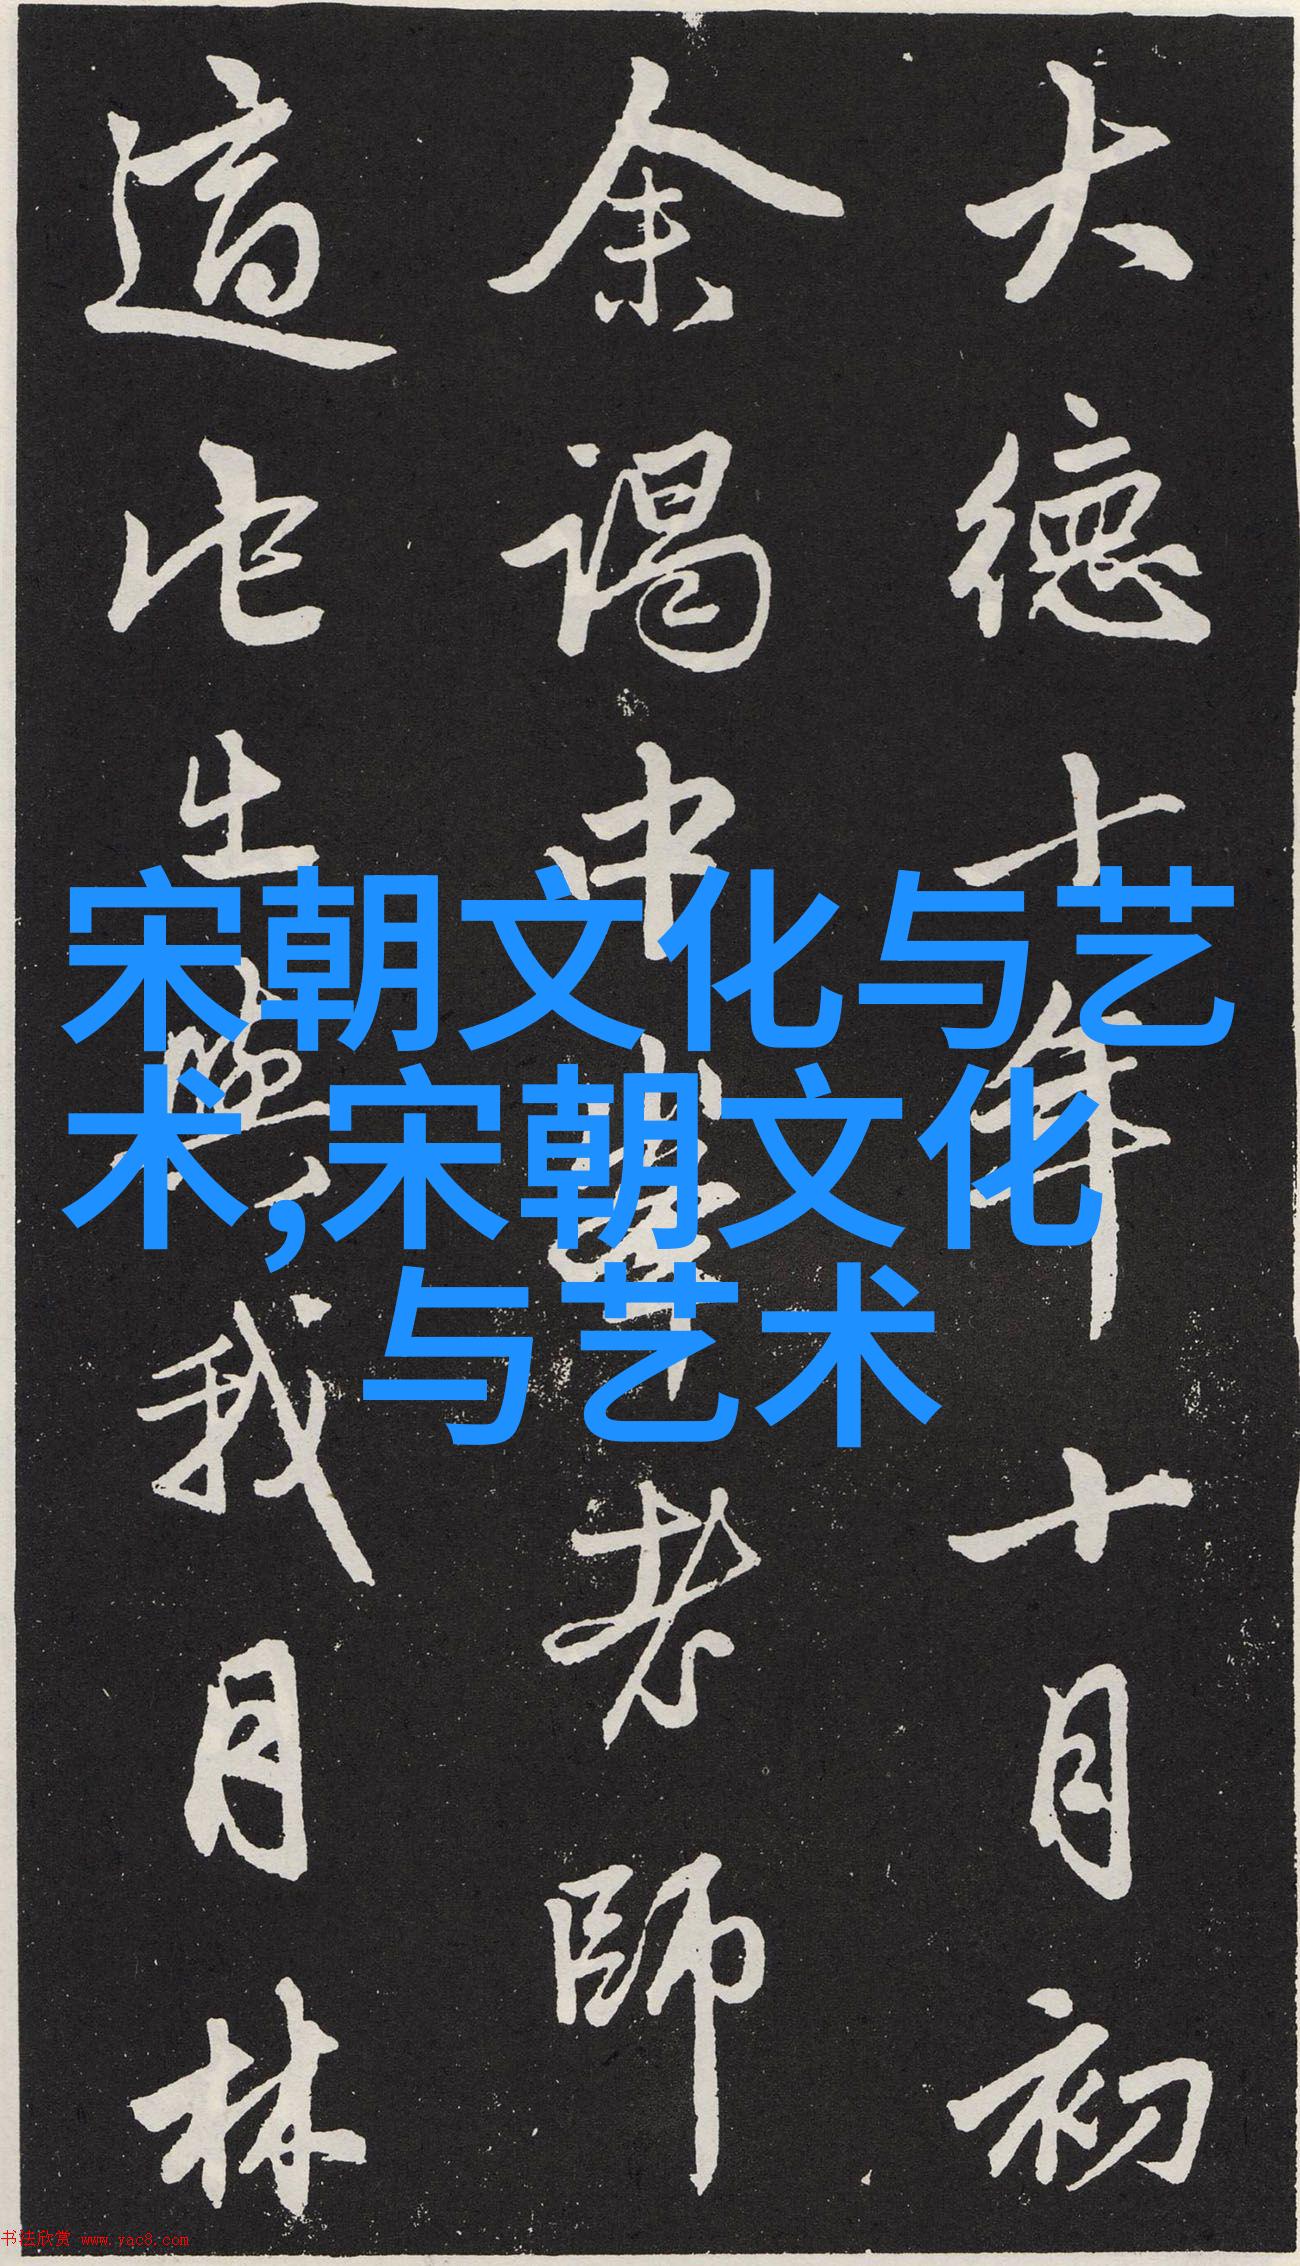 大德十年十月初
余謁中峯老師
此生我月林
宋朝文化与艺
术,宋朝文化
与艺术
书法欣赏 www.yac8.com